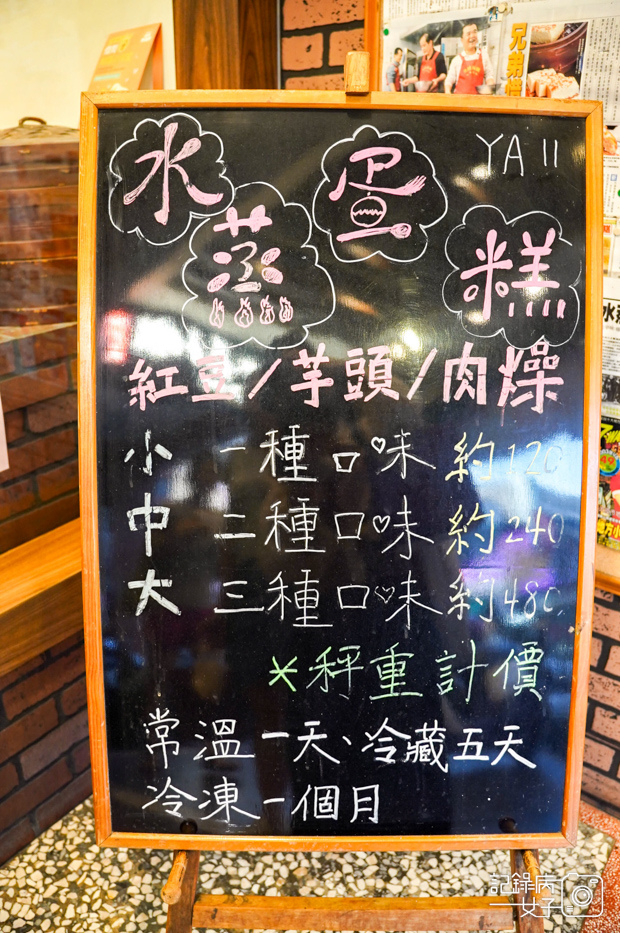 水蒸蛋糕
YA !!
紅豆/芋頭/肉燥
小 一種口味 約120
中 二種口味 約240
大 三種口味 約480
*秤重計價
常溫一天、冷藏五天
冷凍一個月
兄弟
記錄病
女子